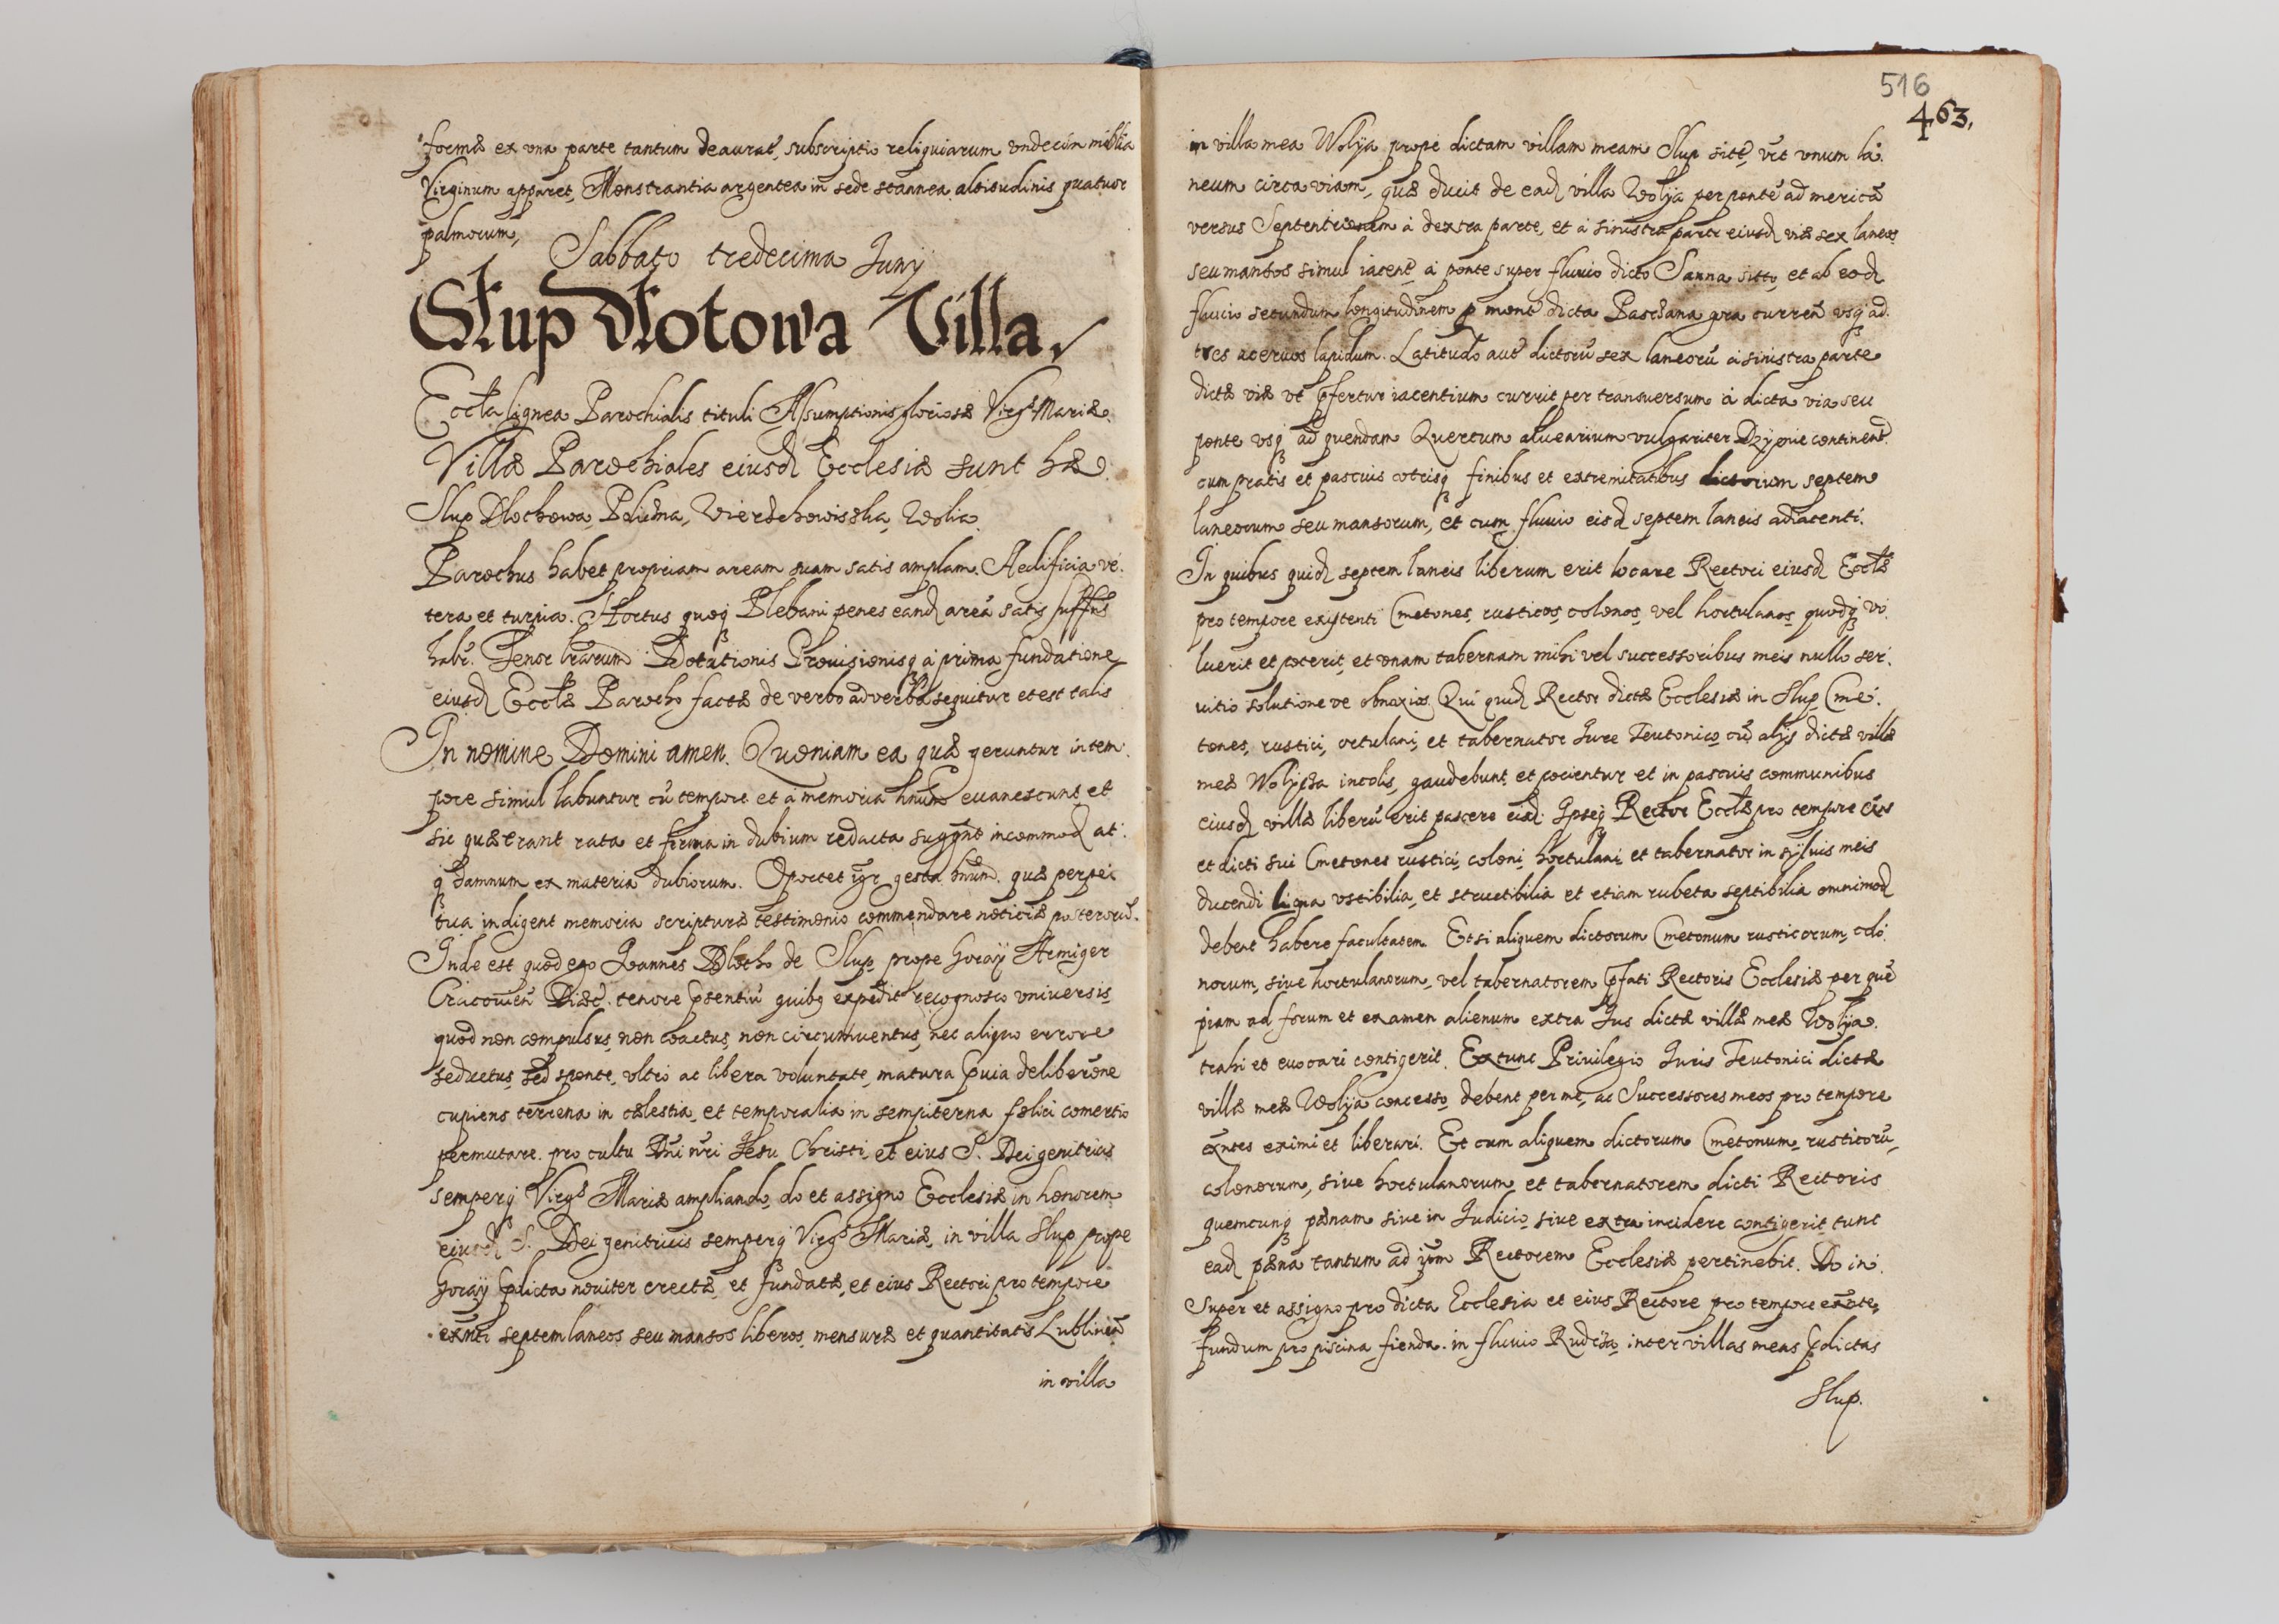 formæ ex una parte tantum deaurat, subscriptio reliquiarum vndecim millia
Virginum apparet, Monstrantia argentea in sede stannea altitudinis quatuor
palmorum,
Sabbato tredecima Junij
Słup Dłotowa Villa.
Eccl̃a lignea Parochialis tituli Assumptionis gloriosæ Virg̃s Mariæ.
Villæ Parochiales eiusd Ecclesiæ sunt hæ.
Slup Dlothowa, Polichna, Wierzchowisska, Wolia.
Parochus habet propriam aream suam satis amplam. Aedificia ve-
tera et turpia. Hortus quoq Plebani penes eand areã satis suffns
habr̃. Tenor lr̃arum Dotationis Prouisionisq a prima fundatione
eiusd Eccl̃æ Parocho factæ de verbo ad verbũ sequitur et est talis
In nomine Domini amen. Quoniam ea quæ geruntur in tem-
pore simul labuntur cũ tempore et à memoria hm̃m euanescunt, et
sic quæ erant rata et firma in dubium redacta suggr̃nt incommod at-
q damnum ex materia dubiorum. Oportet igr̃ gesta hm̃m quæ perpe-
tua indigent memoria scripturæ testimonio commendare noticiæ posterorũ.
Inde est quod ego Joannes Dlotho de Slup prope Goray Armiger
Cracouieñ Diæc. tenore pñtiũ quibq expedit recognosco vniuersis,
quod non compulsus, non coactus, non circumuentus, nec aliquo errore
seductus, sed sponte, vltro ac libera voluntate, matura p̃uia deliberõne
cupiens terrena in cælestia, et temporalia in sempiterna fælici comertio
permutare. pro cultu Dñi nr̃i Jesu Christi, et eius S. Dei genitricis
semperq Virg̃s Mariæ ampliando, do et assigno Ecclesiæ in honorem
eiusd S. Dei genitricis semperq Virg̃s Mariæ, in villa Slup prope
Goray p̃dicta nouiter erectæ, et fundatæ, et eius Rectori pro tempore
exñti septem laneos seu mansos liberos, mensuræ et quantitatis Lublineñ
in villa
516
463.
in villa mea Wolija prope dictam villam meam Slup sitẽ, vƚt vnum la-
neum circa viam, quæ ducit de ead villa Wolija per pontẽ ad mericã
versus Septentrionem à dextra parte, et à sinistra parte eiusd viæ sex laneos
seu mansos simul iacent à ponte super fluuio dicto Sanna sitto, et ab eod
fluuio secundum longitudinem p mont dicta gora curreñ vsq ad
tres aceruos lapidum. Latitudo aut dictorũ sex laneorũ à sinistra parte
dictæ viæ vt p̃fertur iacentium currit per transuersum à dicta via seu
ponte vsq ad quendam Quercum aluearium vulgariter Dzyenie continent
cum pratis et pascuis vtrisq finibus et extremitatibus dictorum septem
laneorum seu mansorum, et cum fluuio eisd septem laneis adiacenti.
In quibus quid septem laneis liberum erit locare Rectori eiusd Eccl̃æ
pro tempore existenti Cmetones, rusticos, colonos, vel hortulanos, quodq vo-
luerit et poterit, et vnam tabernam mihi vel successoribus meis nullo ser-
uitio solutione ve obnoxios. Qui quid Rector dictæ Ecclesiæ in Slup Cme-
tones, rustici, ortulani, et tabernator Jure Teutonico cũ alijs dictæ villæ
meæ Wolijæ incolis, gaudebunt, et pocientur et in pascuis communibus
eiusd villæ liberũ erit pascere eisd. Ipseq Rector Eccl̃æ pro tempore
et dicti sui Cmetones rustici, coloni, hortulani, et tabernator in syluis meis
ducendi ligna vstibilia, et structibilia et etiam rubeta septibilia omnimod
debent habere facultatem. Et si aliquem dictorum Cmetonum rusticorum, colo-
norum, sive hortulanorum, vel tabernatorem p̃fati Rectoris Ecclesiæ per quẽ
piam ad forum et examen alienum extra Jus dictæ villæ meæ Wolija
trahi et euocari contigerit. Ex tunc Priuilegio Juris Teutonici dictæ
villæ meæ Wolija concesso, debent per me, ac Successores meos pro tempore
exñtes eximi et liberari. Et cum aliquem dictorum Cmetonum, rusticorũ,
colonorum, sive hortulanorum, et tabernatorem dicti Rectoris
quemcunq pænam sive in Judicio, sive extra incidere contigerit, tunc
ead pæna tantum ad ipm̃ Rectorem Ecclesiæ pertinebit. Do in-
super et assigno pro dicta Ecclesia et eius Rectore pro tempore exñte,
fundum pro piscina fienda in fluuio inter villas meas p̃dictas
Slup.